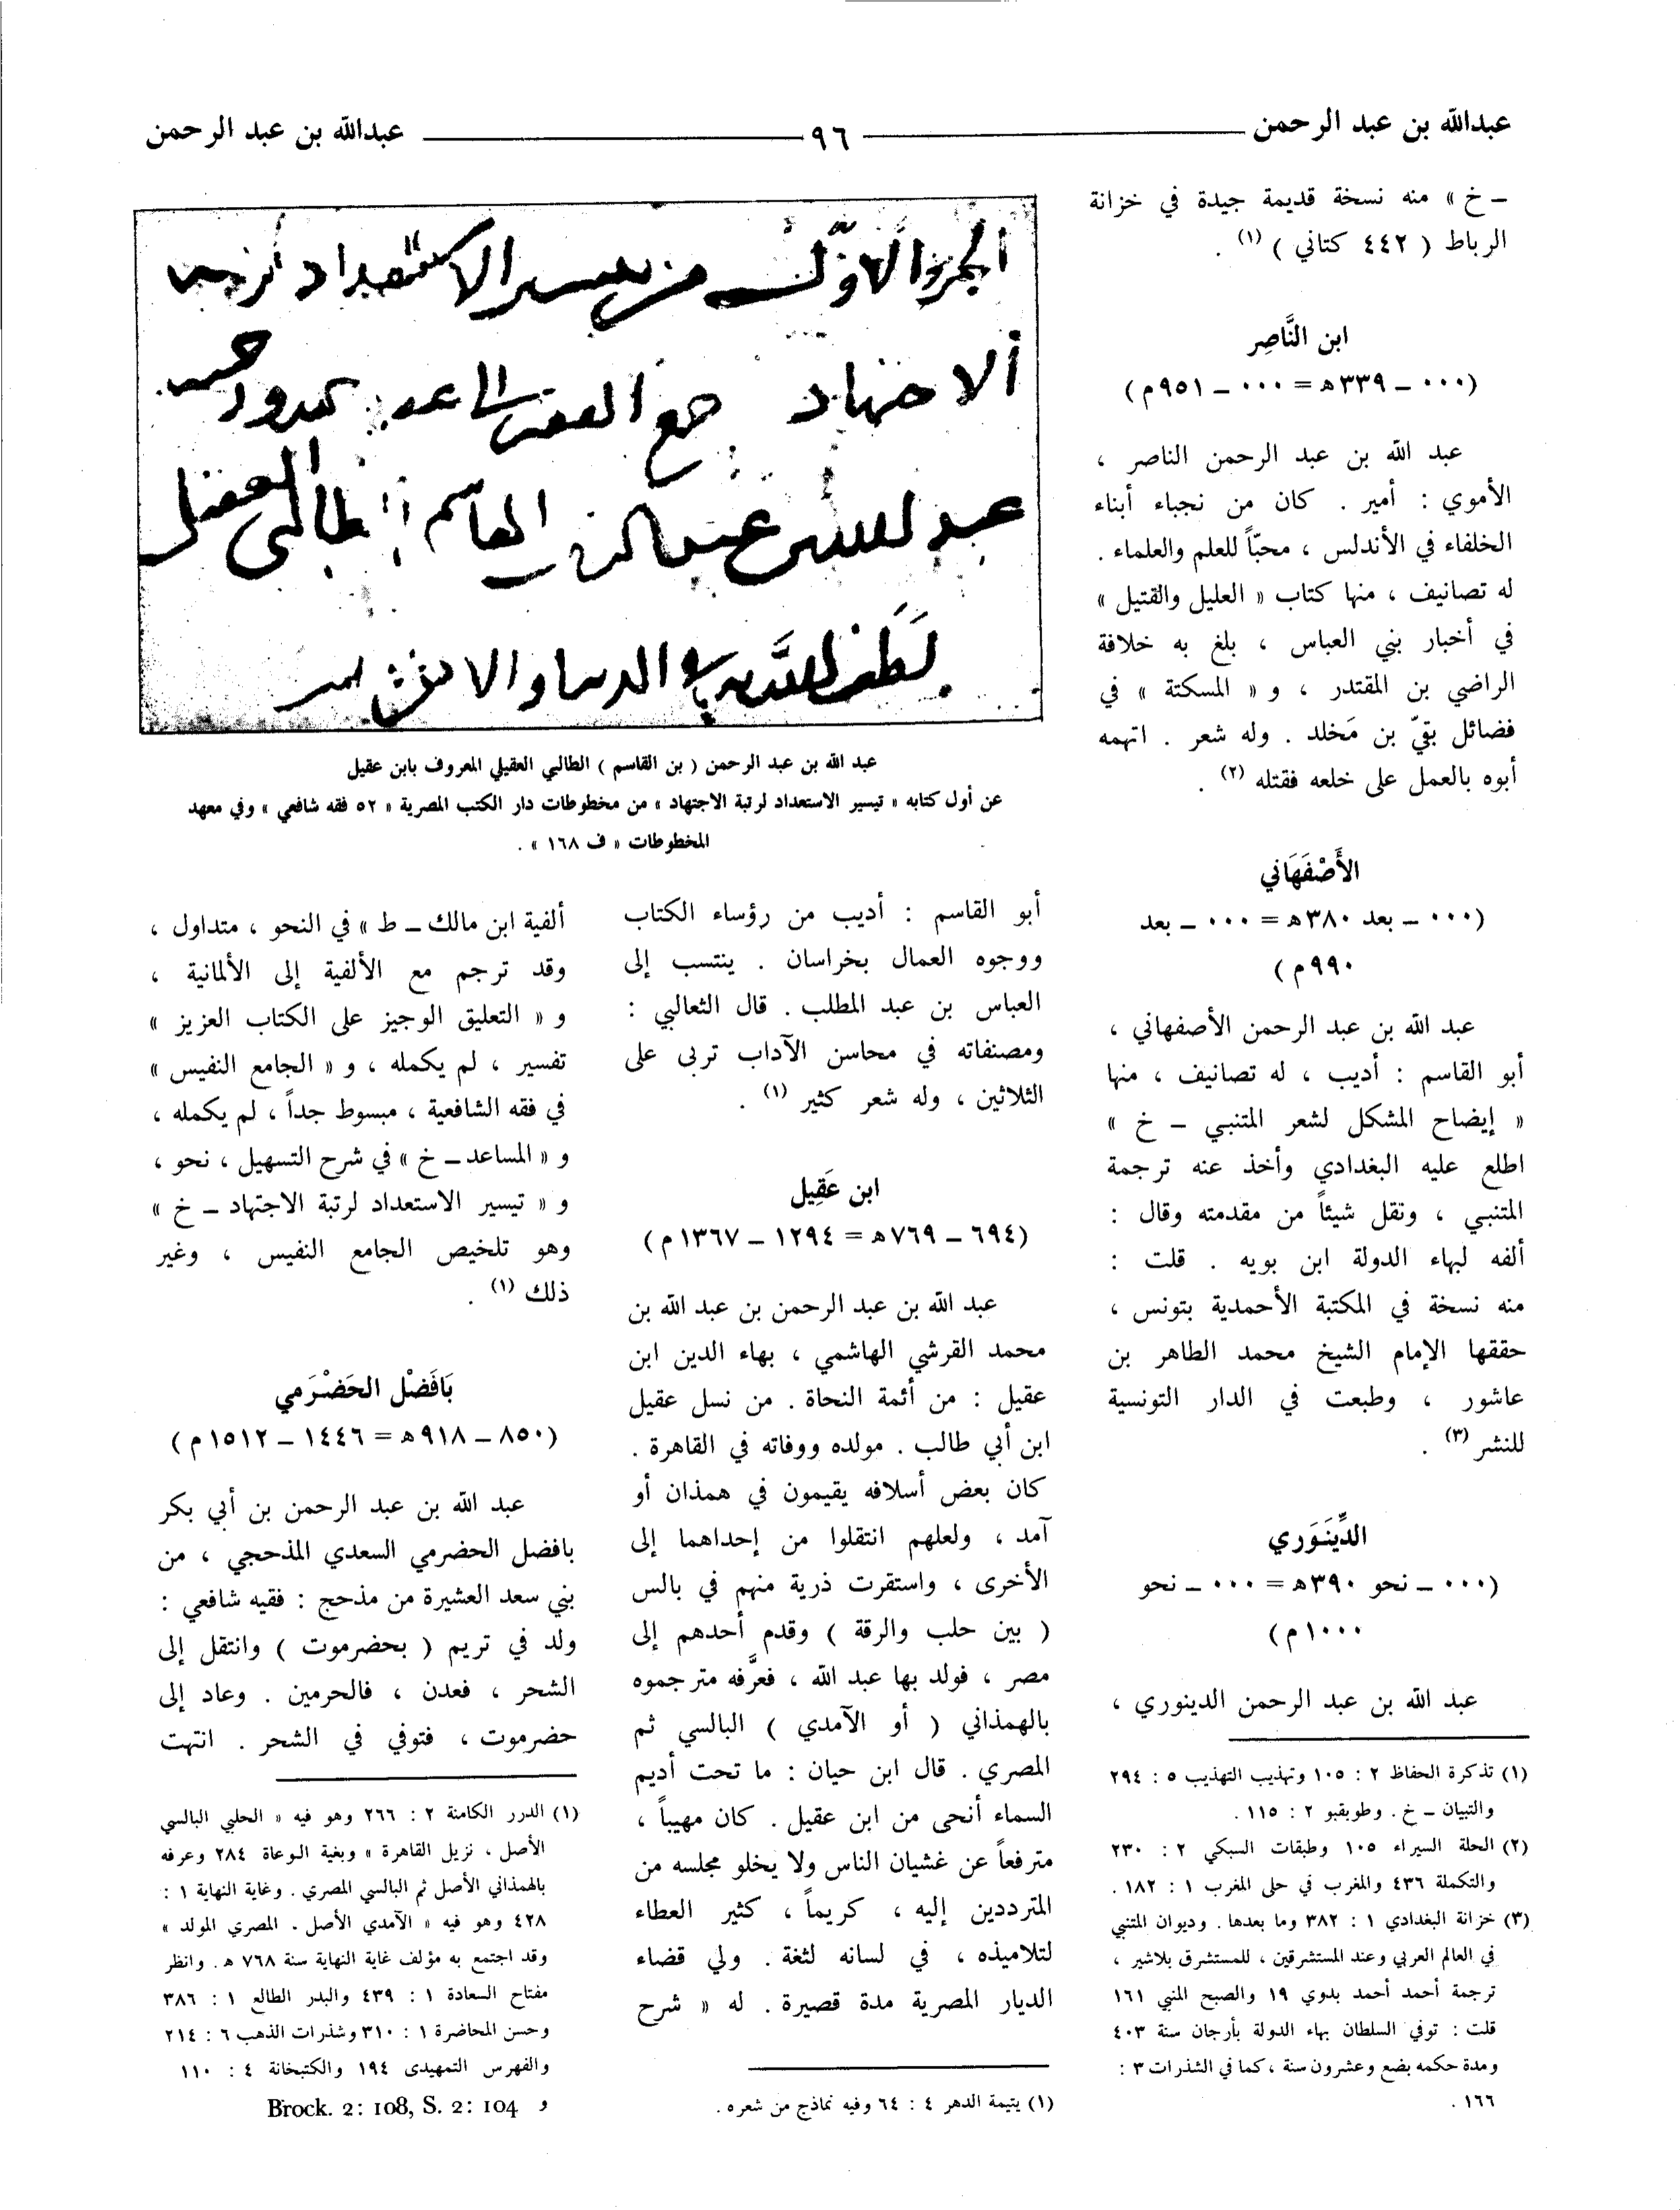 عبدالله بن عبد الرحمن
٩٦
عبدالله بن عبد الرحمن
ــ خ » منه نسخة قديمة جيدة في خزانة
الرباط ( ٤٤٢ كتاني ) (١) .
ابن النَّاصِر
(٠٠٠ ــ ٣٣٩ه = ٠٠٠ ــ ٩٥١م)
عبد الله بن عبد الرحمن الناصر ،
الأموي : أمير . كان من نجباء أبناء
الخلفاء في الأندلس ، محبّاً للعلم والعلماء .
له تصانيف ، منها كتاب « العليل والقتيل »
في أخبار بني العباس ، بلغ به خلافة
الراضي بن المقتدر ، و « المسكتة » في
فضائل بقيّ بن مَخلد . وله شعر . اتهمه
أبوه بالعمل على خلعه فقتله (٢) .
الأَصْفَهَاني
(٠٠٠ ــ بعد ٣٨٠ه = ٠٠٠ ــ بعد
٩٩٠م)
عبد الله بن عبد الرحمن الأصفهاني ،
أبو القاسم : أديب ، له تصانيف ، منها
« إيضاح المشكل لشعر المتنبي ــ خ »
اطلع عليه البغدادي وأخذ عنه ترجمة
المتنبي ، ونقل شيئاً من مقدمته وقال :
ألفه لبهاء الدولة ابن بويه . قلت :
منه نسخة في المكتبة الأحمدية بتونس ،
حققها الإمام الشيخ محمد الطاهر بن
عاشور ، وطبعت في الدار التونسية
للنشر (٣) .
الدِّينَوَري
(٠٠٠ ــ نحو ٣٩٠ه = ٠٠٠ ــ نحو
١٠٠٠م)
عبد الله بن عبد الرحمن الدينوري ،
(١) تذكرة الحفاظ ٢ : ١٠٥ وتهذيب التهذيب ٥ : ٢٩٤
والتبيان ــ خ . وطوبقبو ٢ : ١١٥ .
(٢) الحلة السيراء ١٠٥ وطبقات السبكي ٢ : ٢٣٠
والتكملة ٤٣٦ والمغرب في حلى المغرب ١ : ١٨٢ .
(٣) خزانة البغدادي ١ : ٣٨٢ وما بعدها . وديوان المتنبي
في العالم العربي وعند المستشرقين ، للمستشرق بلاشير ،
ترجمة أحمد أحمد بدوي ١٩ والصبح المنبي ١٦١
قلت : توفي السلطان بهاء الدولة بأرجان سنة ٤٠٣
ومدة حكمه بضع وعشرون سنة ، كما في الشذرات ٣ :
١٦٦ .
الجزء الاول من تيسير الاستعداد لرتبة
الاجتهاد جمع الفقير الى عفو ربه
عبد الله بن عبد الرحمن القاسم الطالبي العقيلي
لطف الله به في الدنيا والاخرة امين
عبد الله بن عبد الرحمن ( بن القاسم ) الطالبي العقيلي المعروف بابن عقيل
عن أول كتابه « تيسير الاستعداد لرتبة الاجتهاد » من مخطوطات دار الكتب المصرية « ٥٢ فقه شافعي » وفي معهد
المخطوطات « ف ١٦٨ » .
أبو القاسم : أديب من رؤساء الكتاب
ووجوه العمال بخراسان . ينتسب إلى
العباس بن عبد المطلب . قال الثعالبي :
ومصنفاته في محاسن الآداب تربى على
الثلاثين ، وله شعر كثير (١) .
ابن عَقِيل
(٦٩٤ ــ ٧٦٩ه = ١٢٩٤ ــ ١٣٦٧م)
عبد الله بن عبد الرحمن بن عبد الله بن
محمد القرشي الهاشمي ، بهاء الدين ابن
عقيل : من أئمة النحاة . من نسل عقيل
ابن أبي طالب . مولده ووفاته في القاهرة .
كان بعض أسلافه يقيمون في همذان أو
آمد ، ولعلهم انتقلوا من إحداهما إلى
الأخرى ، واستقرت ذرية منهم في بالس
( بين حلب والرقة ) وقدم أحدهم إلى
مصر ، فولد بها عبد الله ، فعرَّفه مترجموه
بالهمذاني ( أو الآمدي ) البالسي ثم
المصري . قال ابن حيان : ما تحت أديم
السماء أنحى من ابن عقيل . كان مهيباً ،
مترفعاً عن غشيان الناس ولا يخلو مجلسه من
المترددين إليه ، كريماً ، كثير العطاء
لتلاميذه ، في لسانه لثغة . ولي قضاء
الديار المصرية مدة قصيرة . له « شرح
(١) يتيمة الدهر ٤ : ٦٤ وفيه نماذج من شعره .
ألفية ابن مالك ــ ط » في النحو ، متداول ،
وقد ترجم مع الألفية إلى الألمانية ،
و « التعليق الوجيز على الكتاب العزيز »
تفسير ، لم يكمله ، و « الجامع النفيس »
في فقه الشافعية ، مبسوط جداً ، لم يكمله ،
و « المساعد ــ خ » في شرح التسهيل ، نحو ،
و « تيسير الاستعداد لرتبة الاجتهاد ــ خ »
وهو تلخيص الجامع النفيس ، وغير
ذلك (١) .
بَافَضْل الحَضْرَمي
(٨٥٠ ــ ٩١٨ه = ١٤٤٦ ــ ١٥١٢م)
عبد الله بن عبد الرحمن بن أبي بكر
بافضل الحضرمي السعدي المذحجي ، من
بني سعد العشيرة من مذحج : فقيه شافعي :
ولد في تريم ( بحضرموت ) وانتقل إلى
الشحر ، فعدن ، فالحرمين . وعاد إلى
حضرموت ، فتوفي في الشحر . انتهت
(١) الدرر الكامنة ٢ : ٢٦٦ وهو فيه « الحلبي البالسي
الأصل ، نزيل القاهرة » وبغية الوعاة ٢٨٤ وعرفه
بالهمذاني الأصل ثم البالسي المصري . وغاية النهاية ١ :
٤٢٨ وهو فيه « الآمدي الأصل . المصري المولد »
وقد اجتمع به مؤلف غاية النهاية سنة ٧٦٨ ه . وانظر
مفتاح السعادة ١ : ٤٣٩ والبدر الطالع ١ : ٣٨٦
وحسن المحاضرة ١ : ٣١٠ وشذرات الذهب ٦ : ٢١٤
والفهرس التمهيدى ١٩٤ والكتبخانة ٤ : ١١٠
و Brock. 2: 108, S. 2: 104